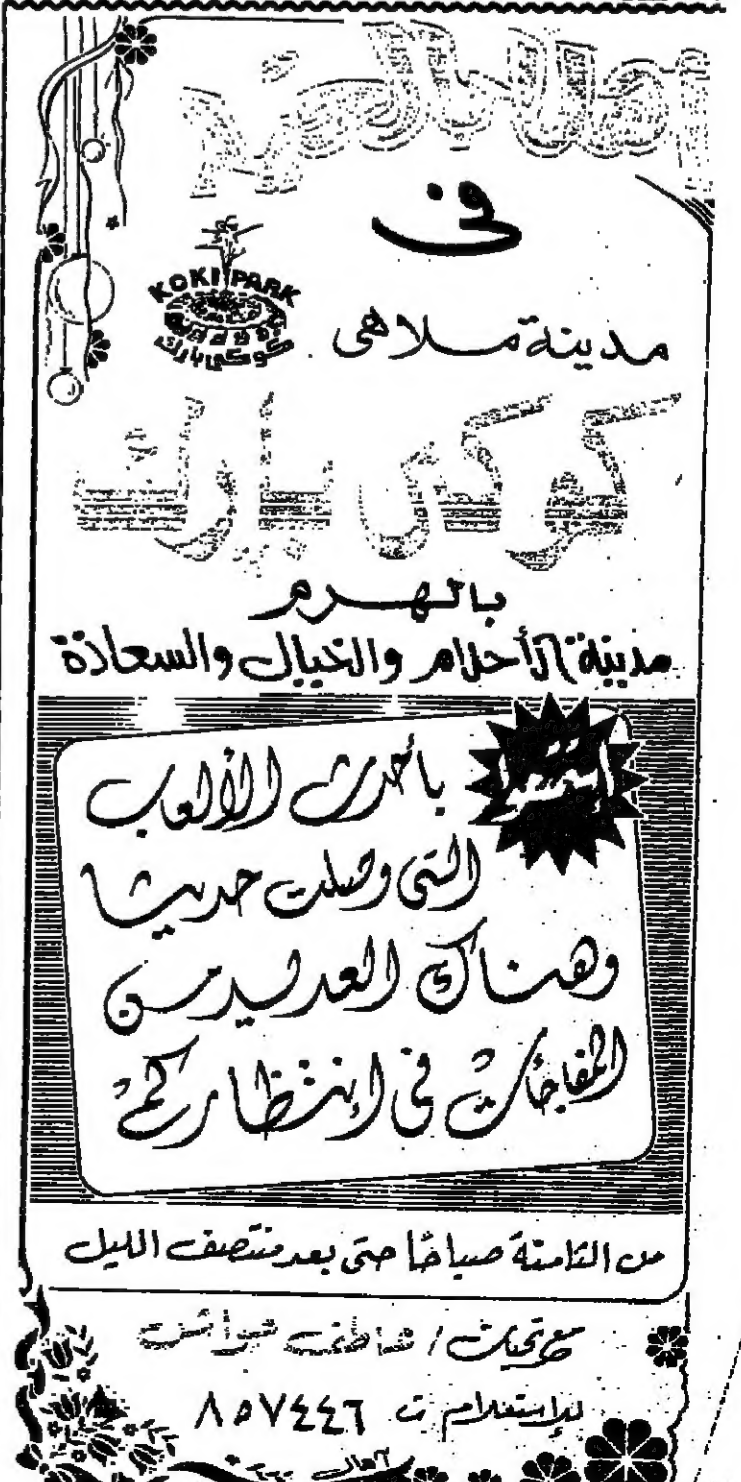 أهلا بالعيد
فى
KOKI PARK
كوكى بارك
مدينة ملاهى
كوكى بارك
بالهرم
مدينة الأحلام والخيال والسعادة
بأحدث الألعاب
التى وصلت حديثا
وهناك العديد من
المفاجآت فى إنتظاركم
من الثامنة صباحًا حتى بعد منتصف الليل
مع تحيات /
للإستعلام ت ٨٥٧٤٤٦